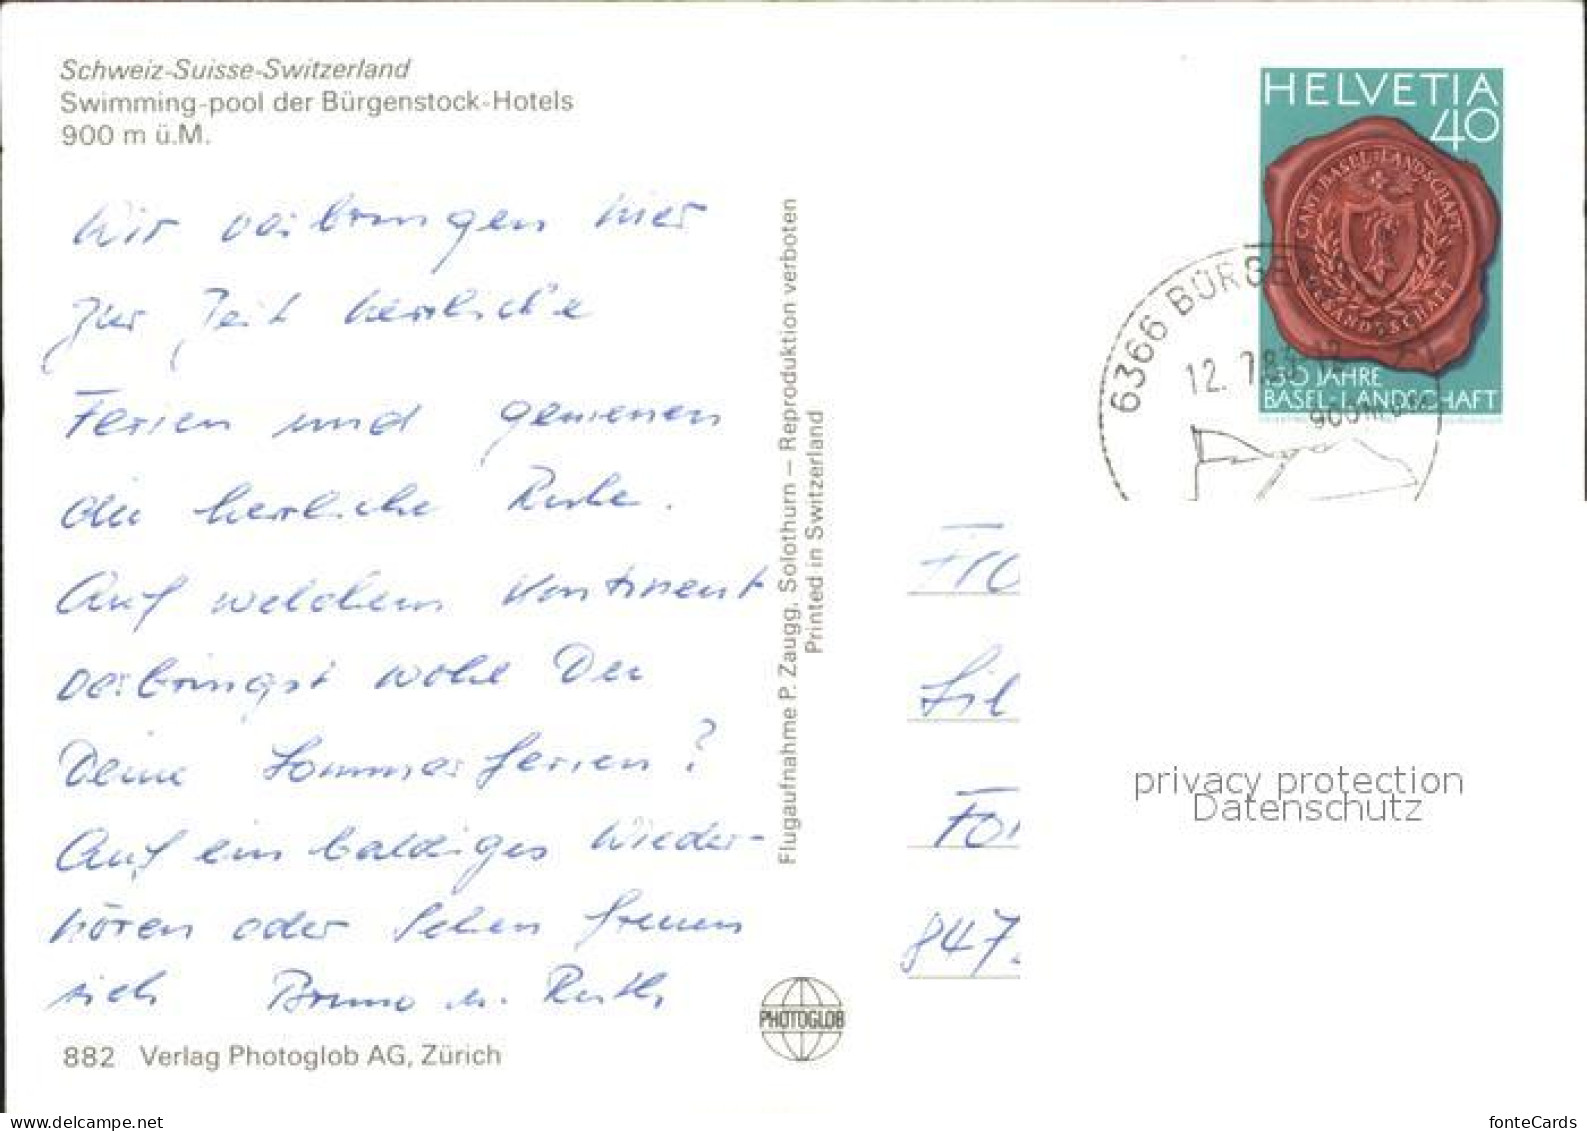 Schweiz-Suisse-Switzerland
Swimming-pool der Bürgenstock-Hotels
900 m ü.M.
Wir verbringen hier
zur Zeit herrliche
Ferien und geniessen
die herrliche Ruhe.
Auf welchem Kontinent
verbringst wohl Du
Deine Sommerferien?
Auf ein baldiges Wieder-
hören oder Sehen freuen
sich Bruno u. Ruth
882 Verlag Photoglob AG, Zürich
Flugaufnahme P. Zaugg, Solothurn – Reproduktion verboten
Printed in Switzerland
PHOTOGLOB
HELVETIA
40
CANT. BASEL-LANDSCHAFT
150 JAHRE
BASEL-LANDSCHAFT
6366 BÜRGENS
12. 7.83-12
900m ü.M.
Fro
Sil
For
847
privacy protection
Datenschutz
www.delcampe.net
fonteCards